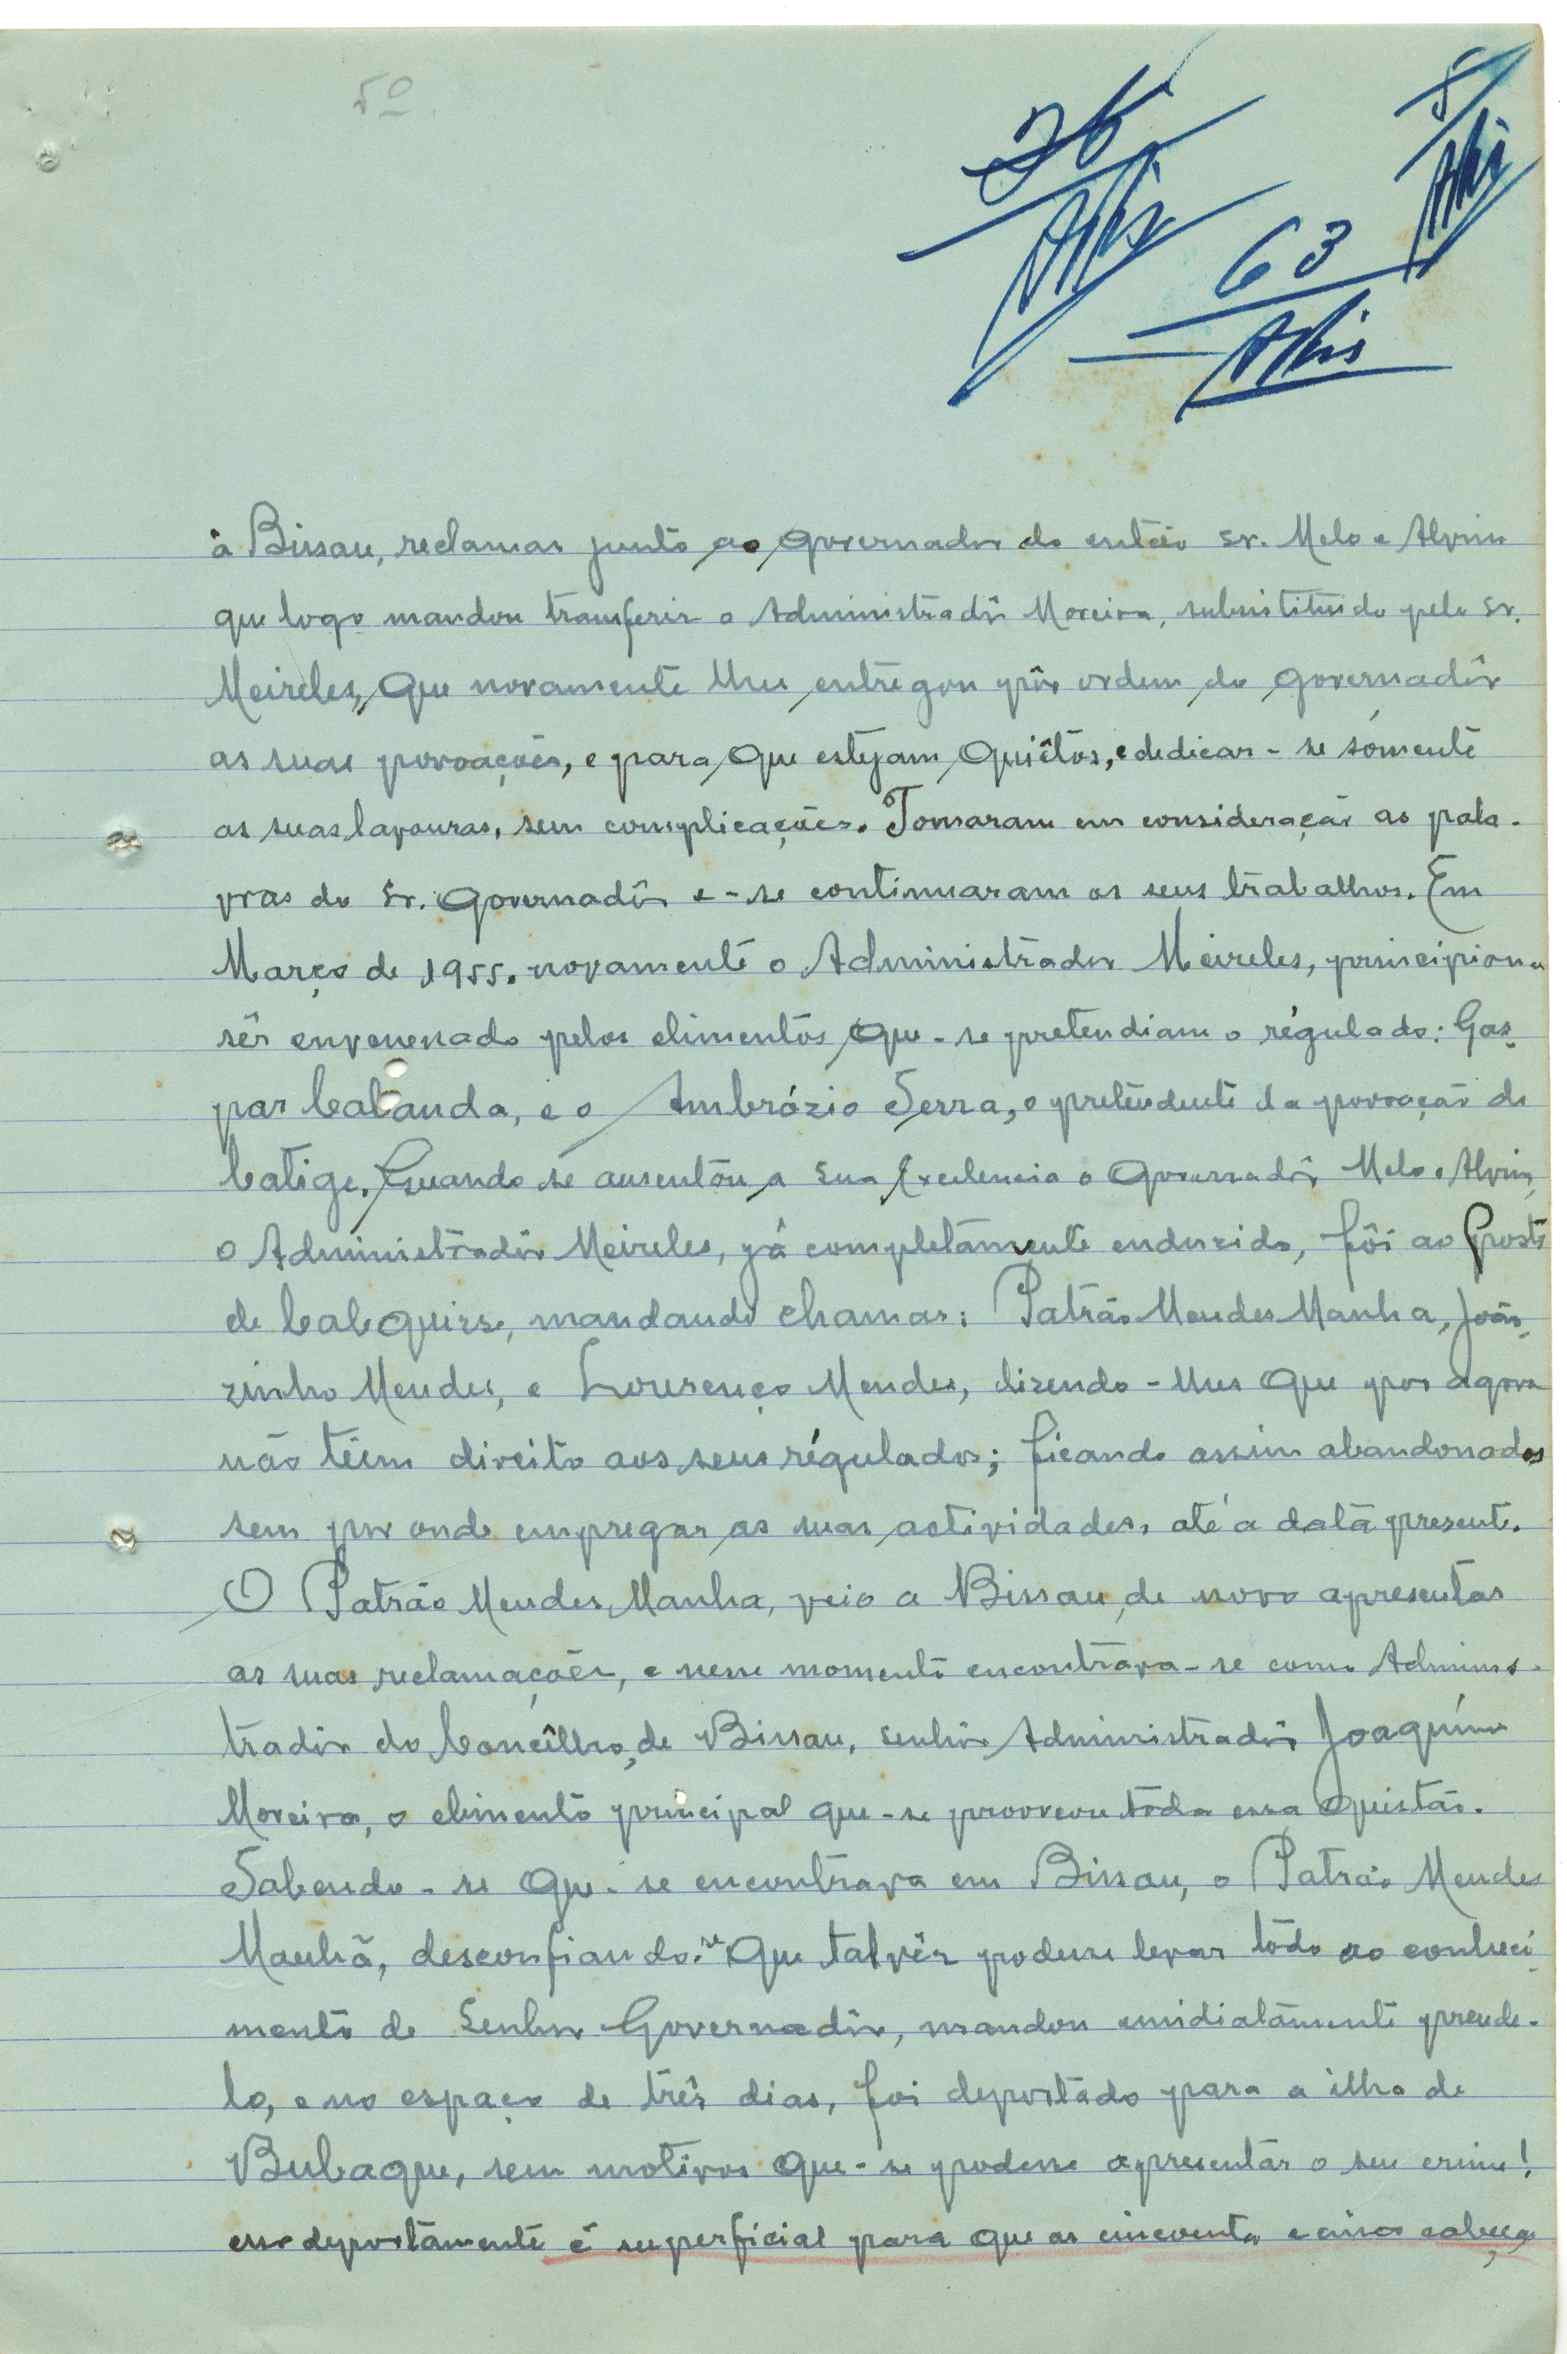 5º
26
5
63
à Bissau, reclamar junto ao governador do então Sr. Melo e Alvim
que logo mandou transferir o Administradôr Moreira, subsistituido pelo Sr.
Meireles, que novamente lhes entregou pôr ordem do governadôr
as suas povoações, e para que estejam quiêtos, e dedicar-se sómente
as suas lavouras, sem complicações. Tomaram em consideração as pala-
vras do Sr. Governadôr e-se continuaram os seus trabalhos. Em
Março de 1955. novamente o Administrador Meireles, principiou a
sêr envenenado pelos elimentos que-se pretendiam o régulado: Gas-
par Calanda, e o Ambrózio Serra, o pretendente da povoação de
Catige. Quando se ausentou a sua Excelencia o Governadôr Melo e Alvim,
o Administradôr Meireles, já completamente enduzido, fôi ao Posto
de Calequisse, mandando chamar: Patrão Mendes Manha, João-
zinho Mendes, e Lourenço Mendes, dizendo-lhes que por agora
não têem direito aos seus régulados; ficando assim abandonados
sem por onde empregar as suas actividades, até a data presente.
O Patrão Mendes Manha, veio a Bissau, de novo apresentar
as suas reclamações, e nesse momento encontrava-se como Adminis-
tradôr do Concêlho, de Bissau, senhôr Administradôr Joaquím
Moreira, o elimento principal que-se provocou tôda essa questão.
Sabendo-se que-se encontrava em Bissau, o Patrão Mendes
Manhã, desconfiando-se que talvêz podesse levar tôdo ao conheci-
mento de Senhor Governadôr, mandou emidiatamente prende-
lo, e no espaço de três dias, foi deportado para a ilha de
Bubaque, sem motivos que-se podesse apresentar o seu crime!
esse deportamente é superficial para que as cincoenta e cinco cabeças